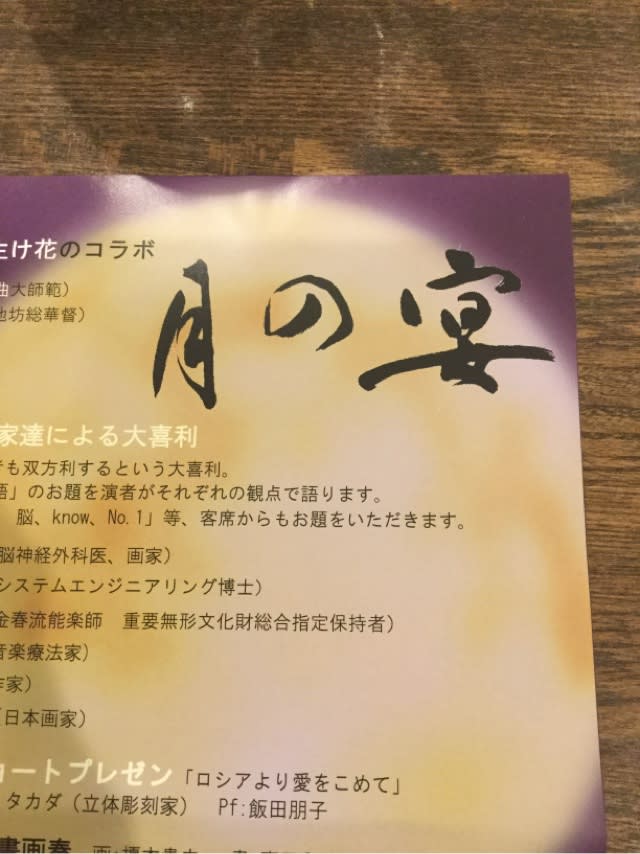 生け花のコラボ
曲大師範）
池坊総華督）
月の宴
家達による大喜利
も双方利するという大喜利。
語」のお題を演者がそれぞれの観点で語ります。
脳、know、No.1」等、客席からもお題をいただきます。
脳神経外科医、画家）
システムエンジニアリング博士）
金春流能楽師　重要無形文化財総合指定保持者）
音楽療法家）
作家）
（日本画家）
ートプレゼン「ロシアより愛をこめて」
タカダ（立体彫刻家）　Pf:飯田朋子
書画奏